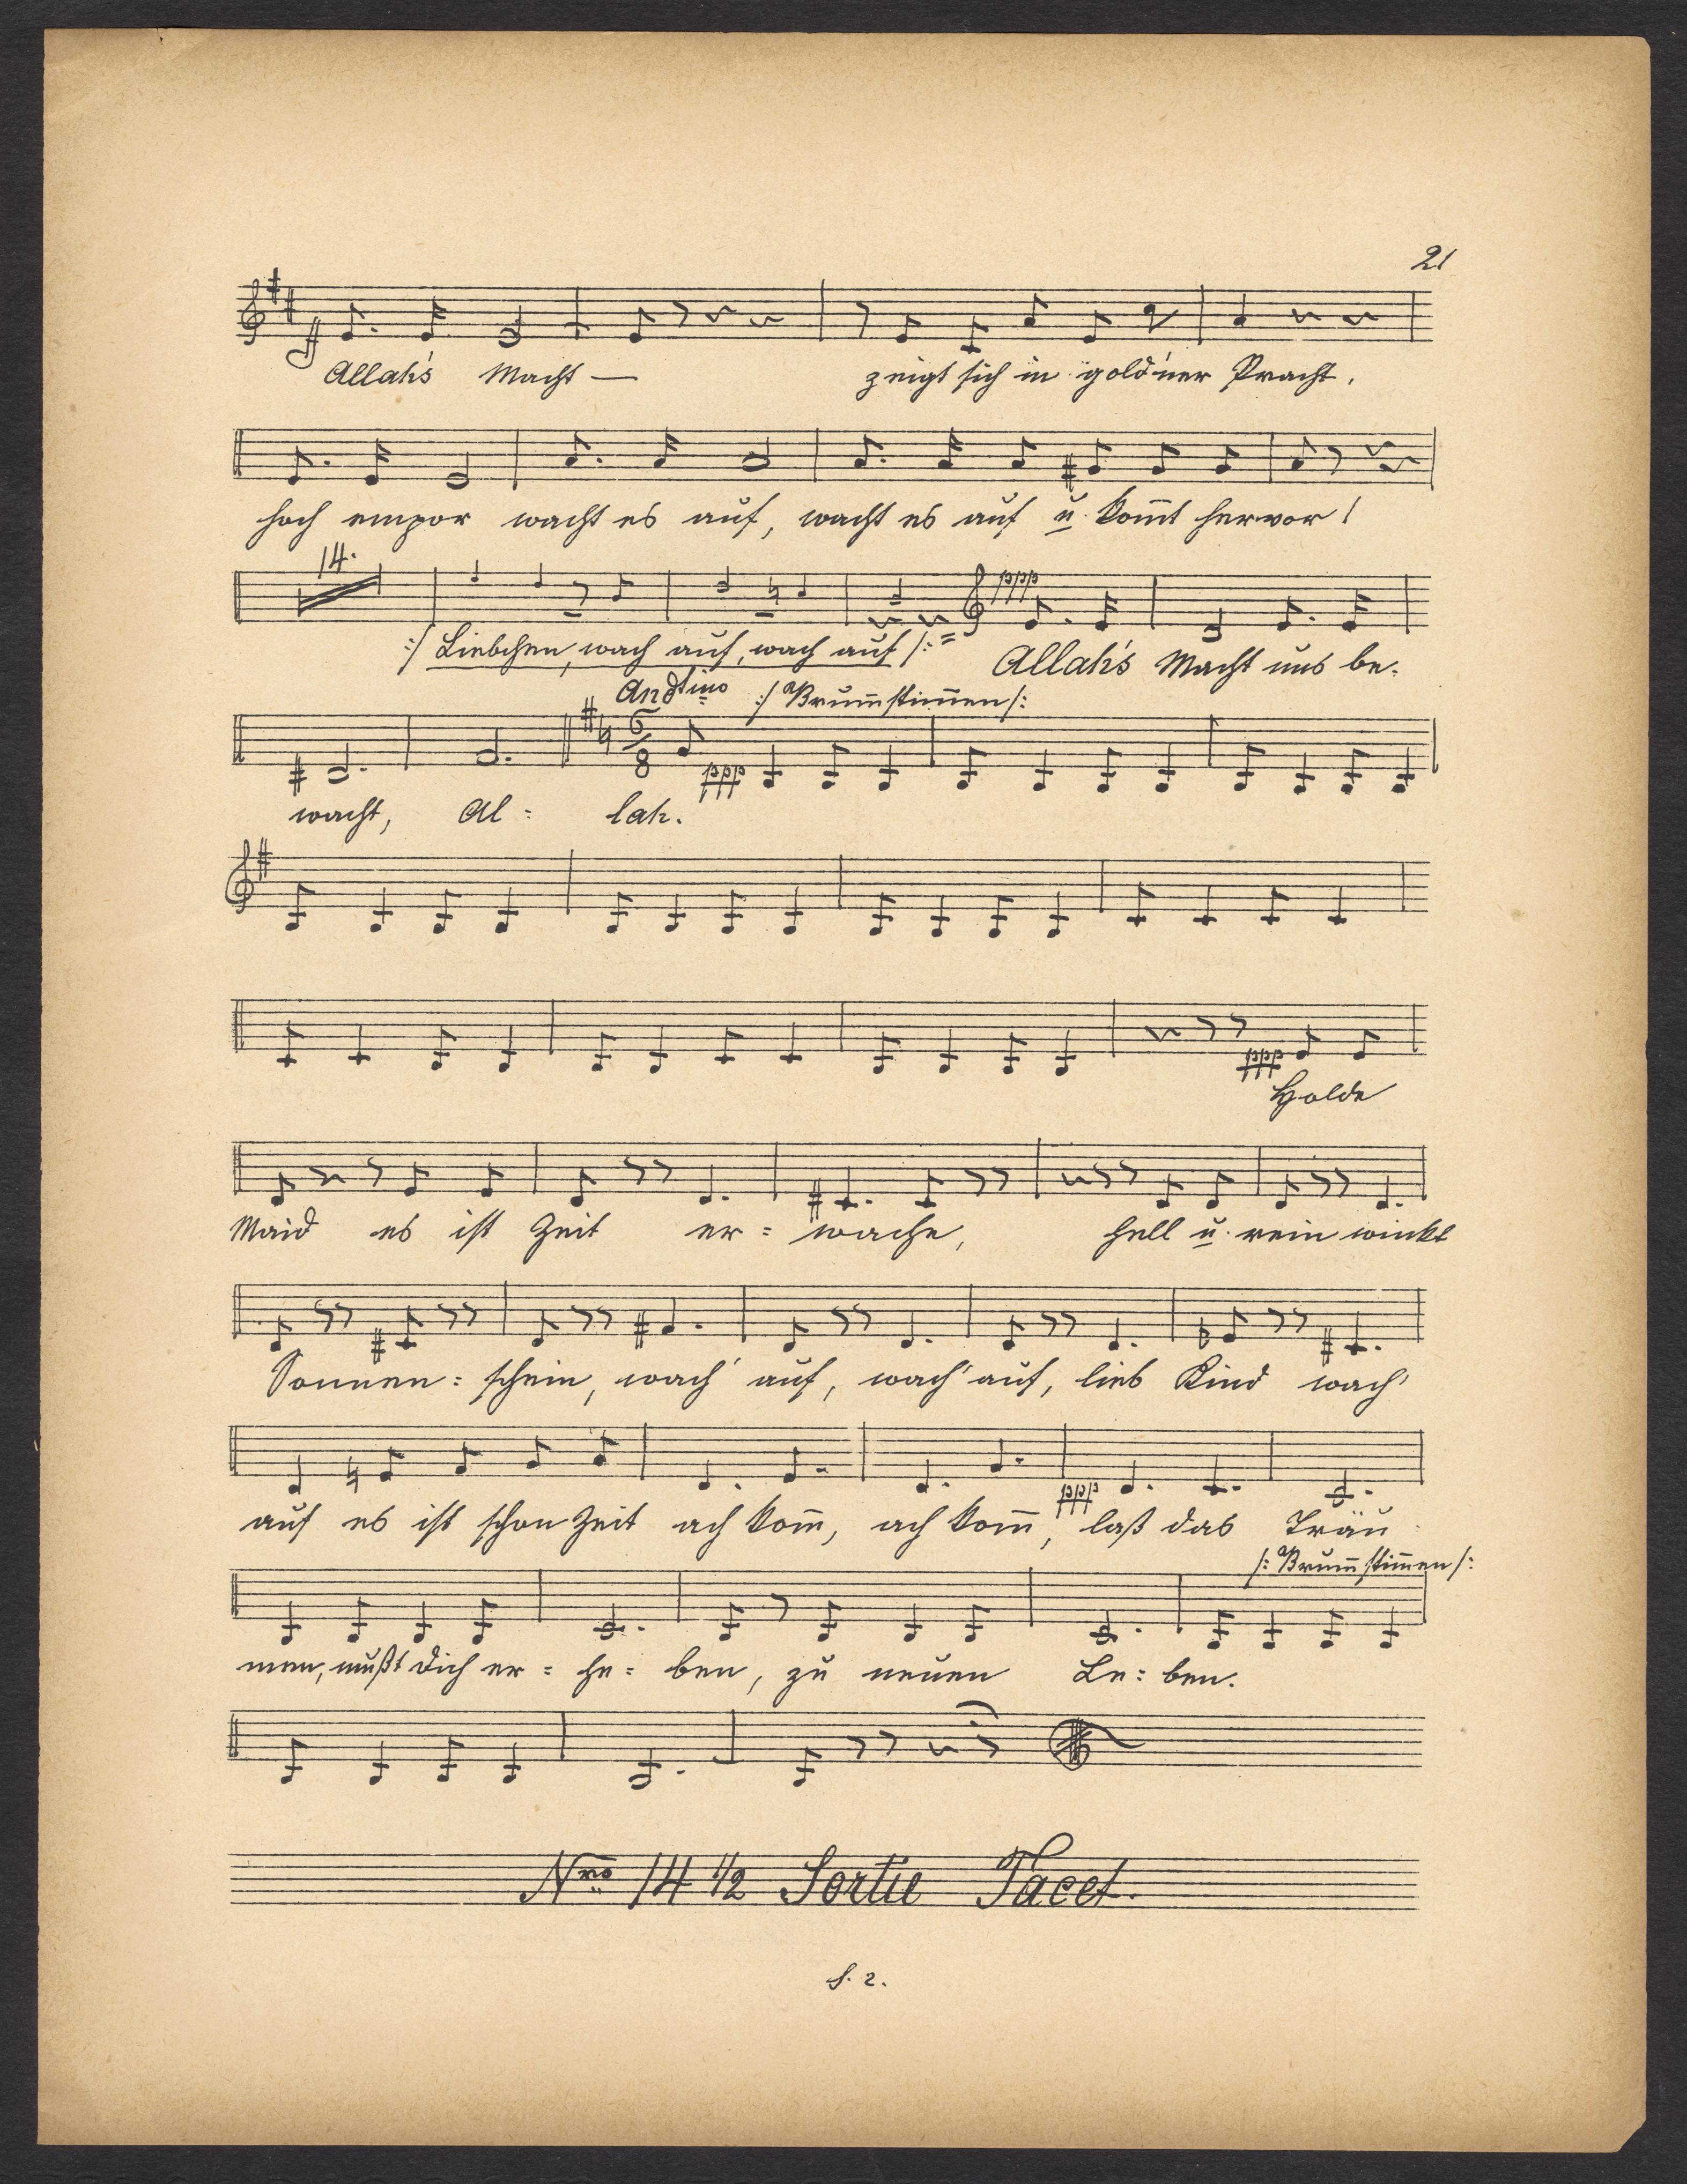 21
ff
Allah's Macht — zeigt sich in gold'ner Pracht,
hoch empor wacht es auf, wacht es auf u. kom̄t hervor!
14.
ppp
:/ Liebchen, wach auf, wach auf /:= Allah's Macht uns be-
Andtino :/ Brum̄stim̄en /:
6/8 ppp
wacht, Al= lah.
ppp
Holde
Maid es ist Zeit er= wache, hell u. rein winkt
Sonnen= schein, wach' auf, wach' auf, lieb Kind wach'
auf es ist schon Zeit ach kom̄, ach kom̄, ppp laß das Träu
/: Brum̄stim̄en /:
men, mußt dich er= he= ben, zu neuen Le= ben.
Nro 14 1/2 Sortie Tacet.
S. 2.